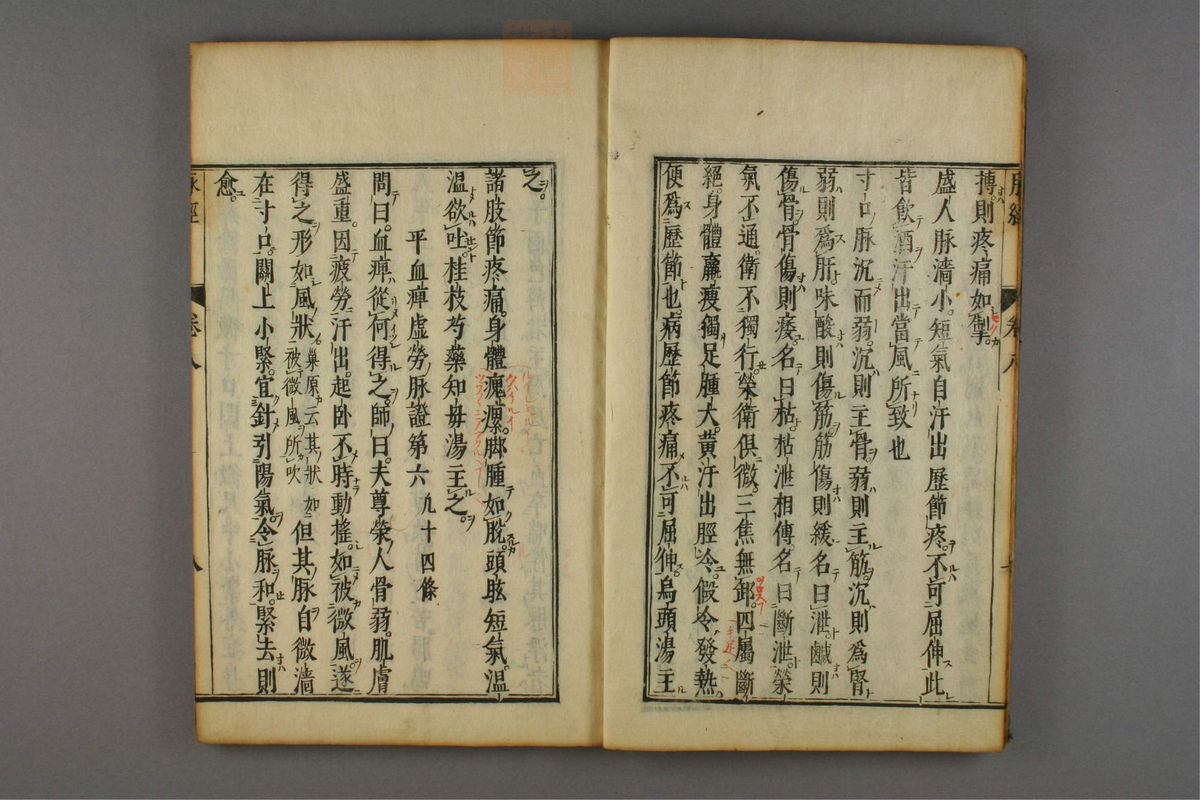 摶則疼痛如掣
盛人脉濇小短氣自汗出歷節疼不可屈伸此
皆飲酒汗出當風所致也
寸口脉沉而弱沉則主骨弱則主筋沉則爲腎
弱則爲肝味酸則傷筋筋傷則緩名曰泄鹹則
傷骨骨傷則痿名曰枯枯泄相傳名曰斷泄榮
氣不通衛不獨行榮衛俱微三焦無御四屬斷
絕身體羸瘦獨足腫大黃汗出脛冷假令發熱
便爲歷節也病歷節疼痛不可屈伸烏頭湯主
之
諸肢節疼痛身體魁瘰脚腫如脫頭眩短氣溫
溫欲吐桂枝芍藥知毋湯主之
平血痺虛勞脉證第六 九十四條
問曰血痺從何得之師曰夫尊榮人骨弱肌膚
盛重因疲勞汗出起卧不時動搖如被微風遂
得之形如風狀 巢原云其狀如被微風所吹 但其脉自微濇
在寸口關上小緊宜針引陽氣令脉和緊去則
愈
脉經 卷八